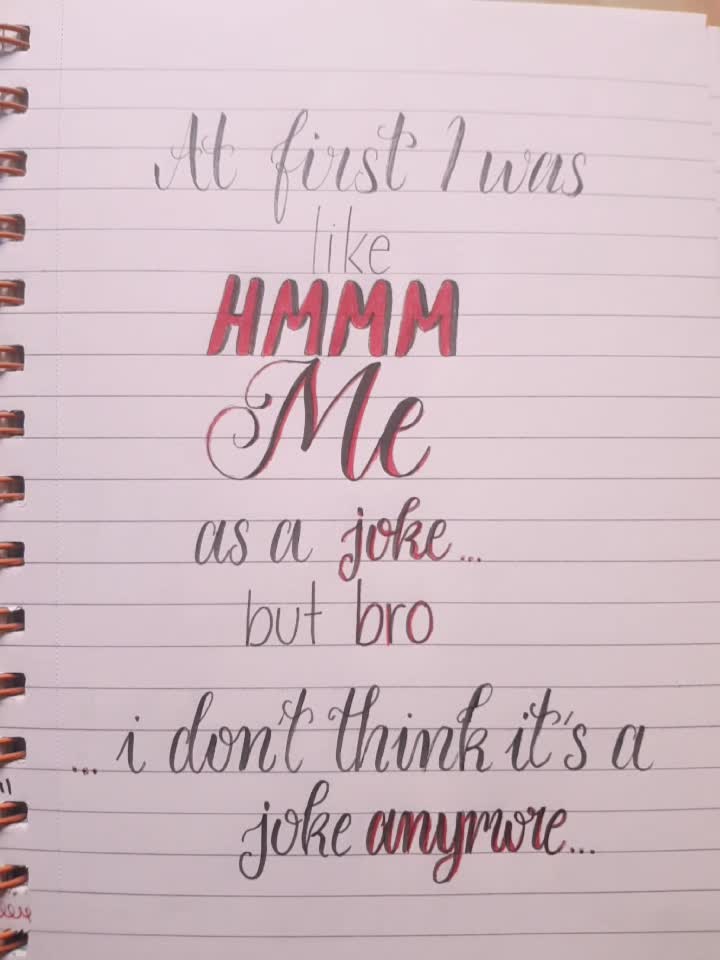 At first I was
like
HMMM
Me
as a joke...
but bro
... i don't think it's a
joke anymore...